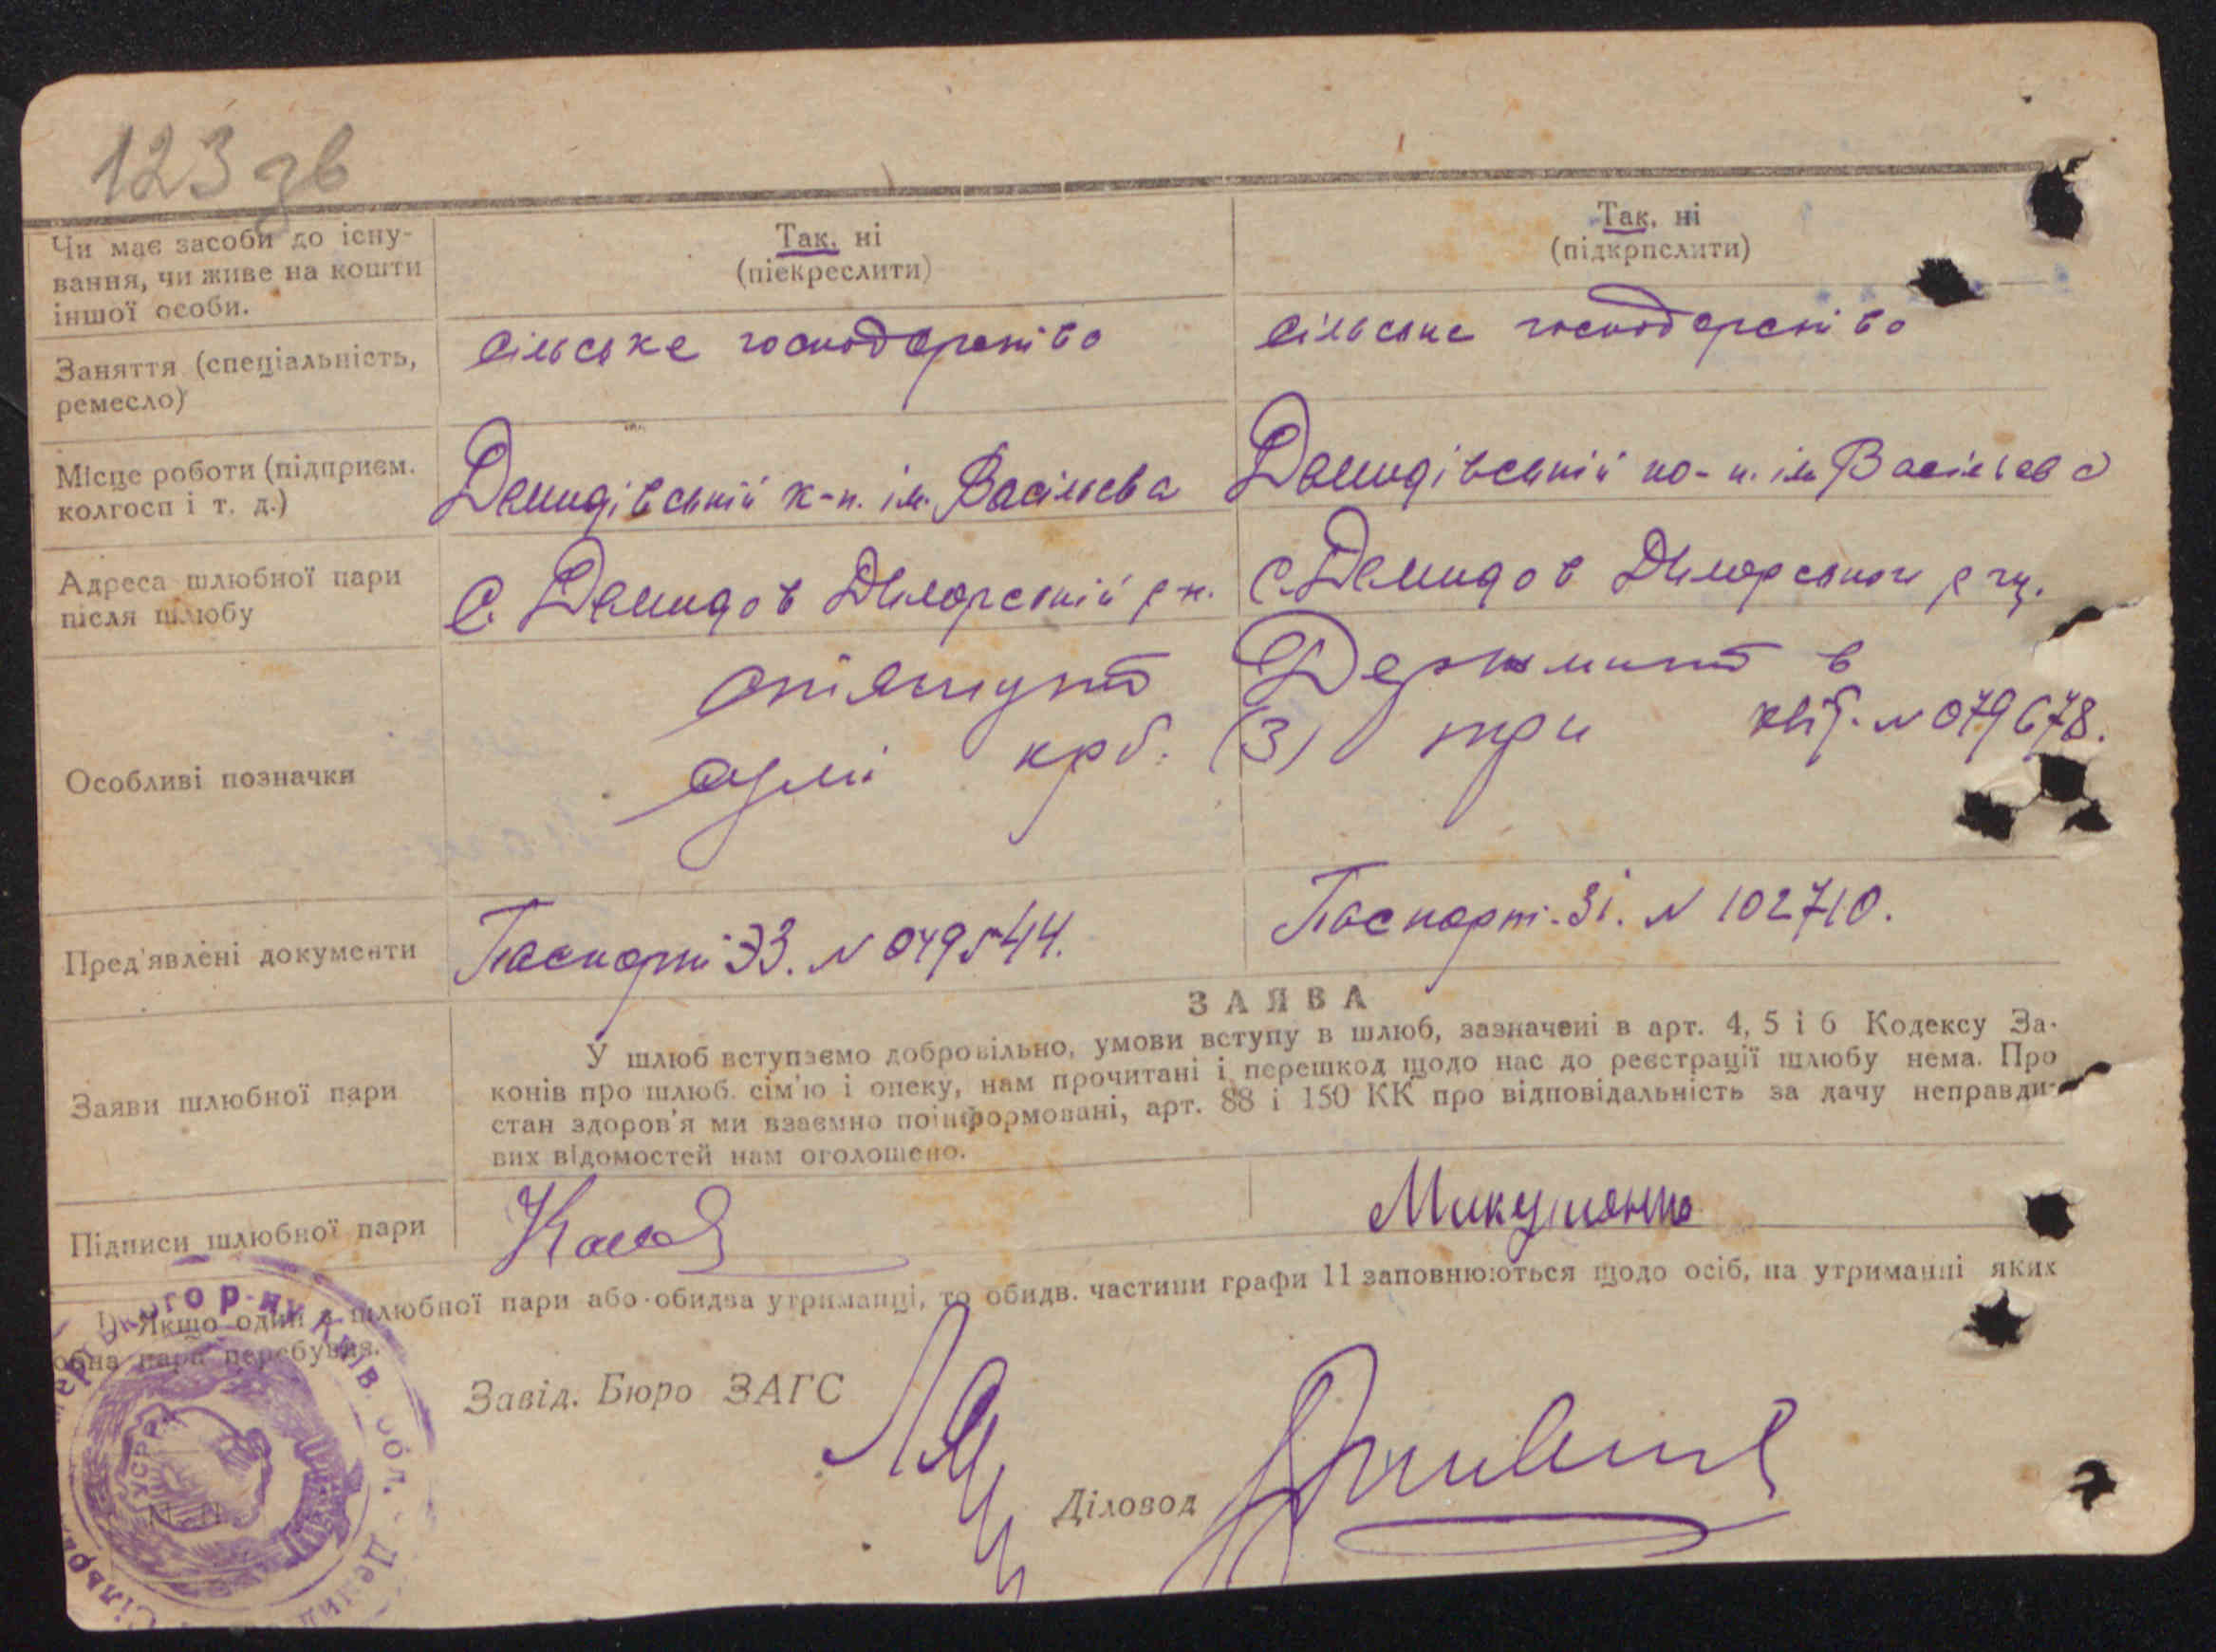 123 зв
Чи має засоби до існу-
вання, чи живе на кошти
іншої особи.
Так, ні
(піекреслити)
Так, ні
(підкрпслити)
Заняття (спеціальність,
ремесло)
сільське господарство
сільське господарство
Місце роботи (підприєм.
колгосп і т. д.)
Демидівський к-п. ім. Васільєва
Демидівський ко-п. ім Васільєва
Адреса шлюбної пари
після шлюбу
С. Демидов Димерський рн.
С. Демидов Димерського
Особливі позначки
Держмито в
крб. (3) три
квіт. № 079678.
Пред'явлені документи
Паспорт ЗЗ. № 079544.
Паспорт. Зі. № 102710.
ЗАЯВА
Заяви шлюбної пари
У шлюб вступаємо добровільно, умови вступу в шлюб, зазначені в арт. 4, 5 і 6 Кодексу За-
конів про шлюб. сім'ю і опеку, нам прочитані і перешкод щодо нас до реєстрації шлюбу нема. Про
стан здоров'я ми взаємно поінформовані, арт. 88 і 150 КК про відповідальність за дачу неправди-
вих відомостей нам оголошено.
Підписи шлюбної пари
1) Якщо один з шлюбної пари або обидва утриманці, то обидв. частини графи 11 заповнюються щодо осіб, на утриманні яких
обна пара перебуває.
Завід. Бюро ЗАГС
Діловод
М. П.
УСРР
Київ. обл.